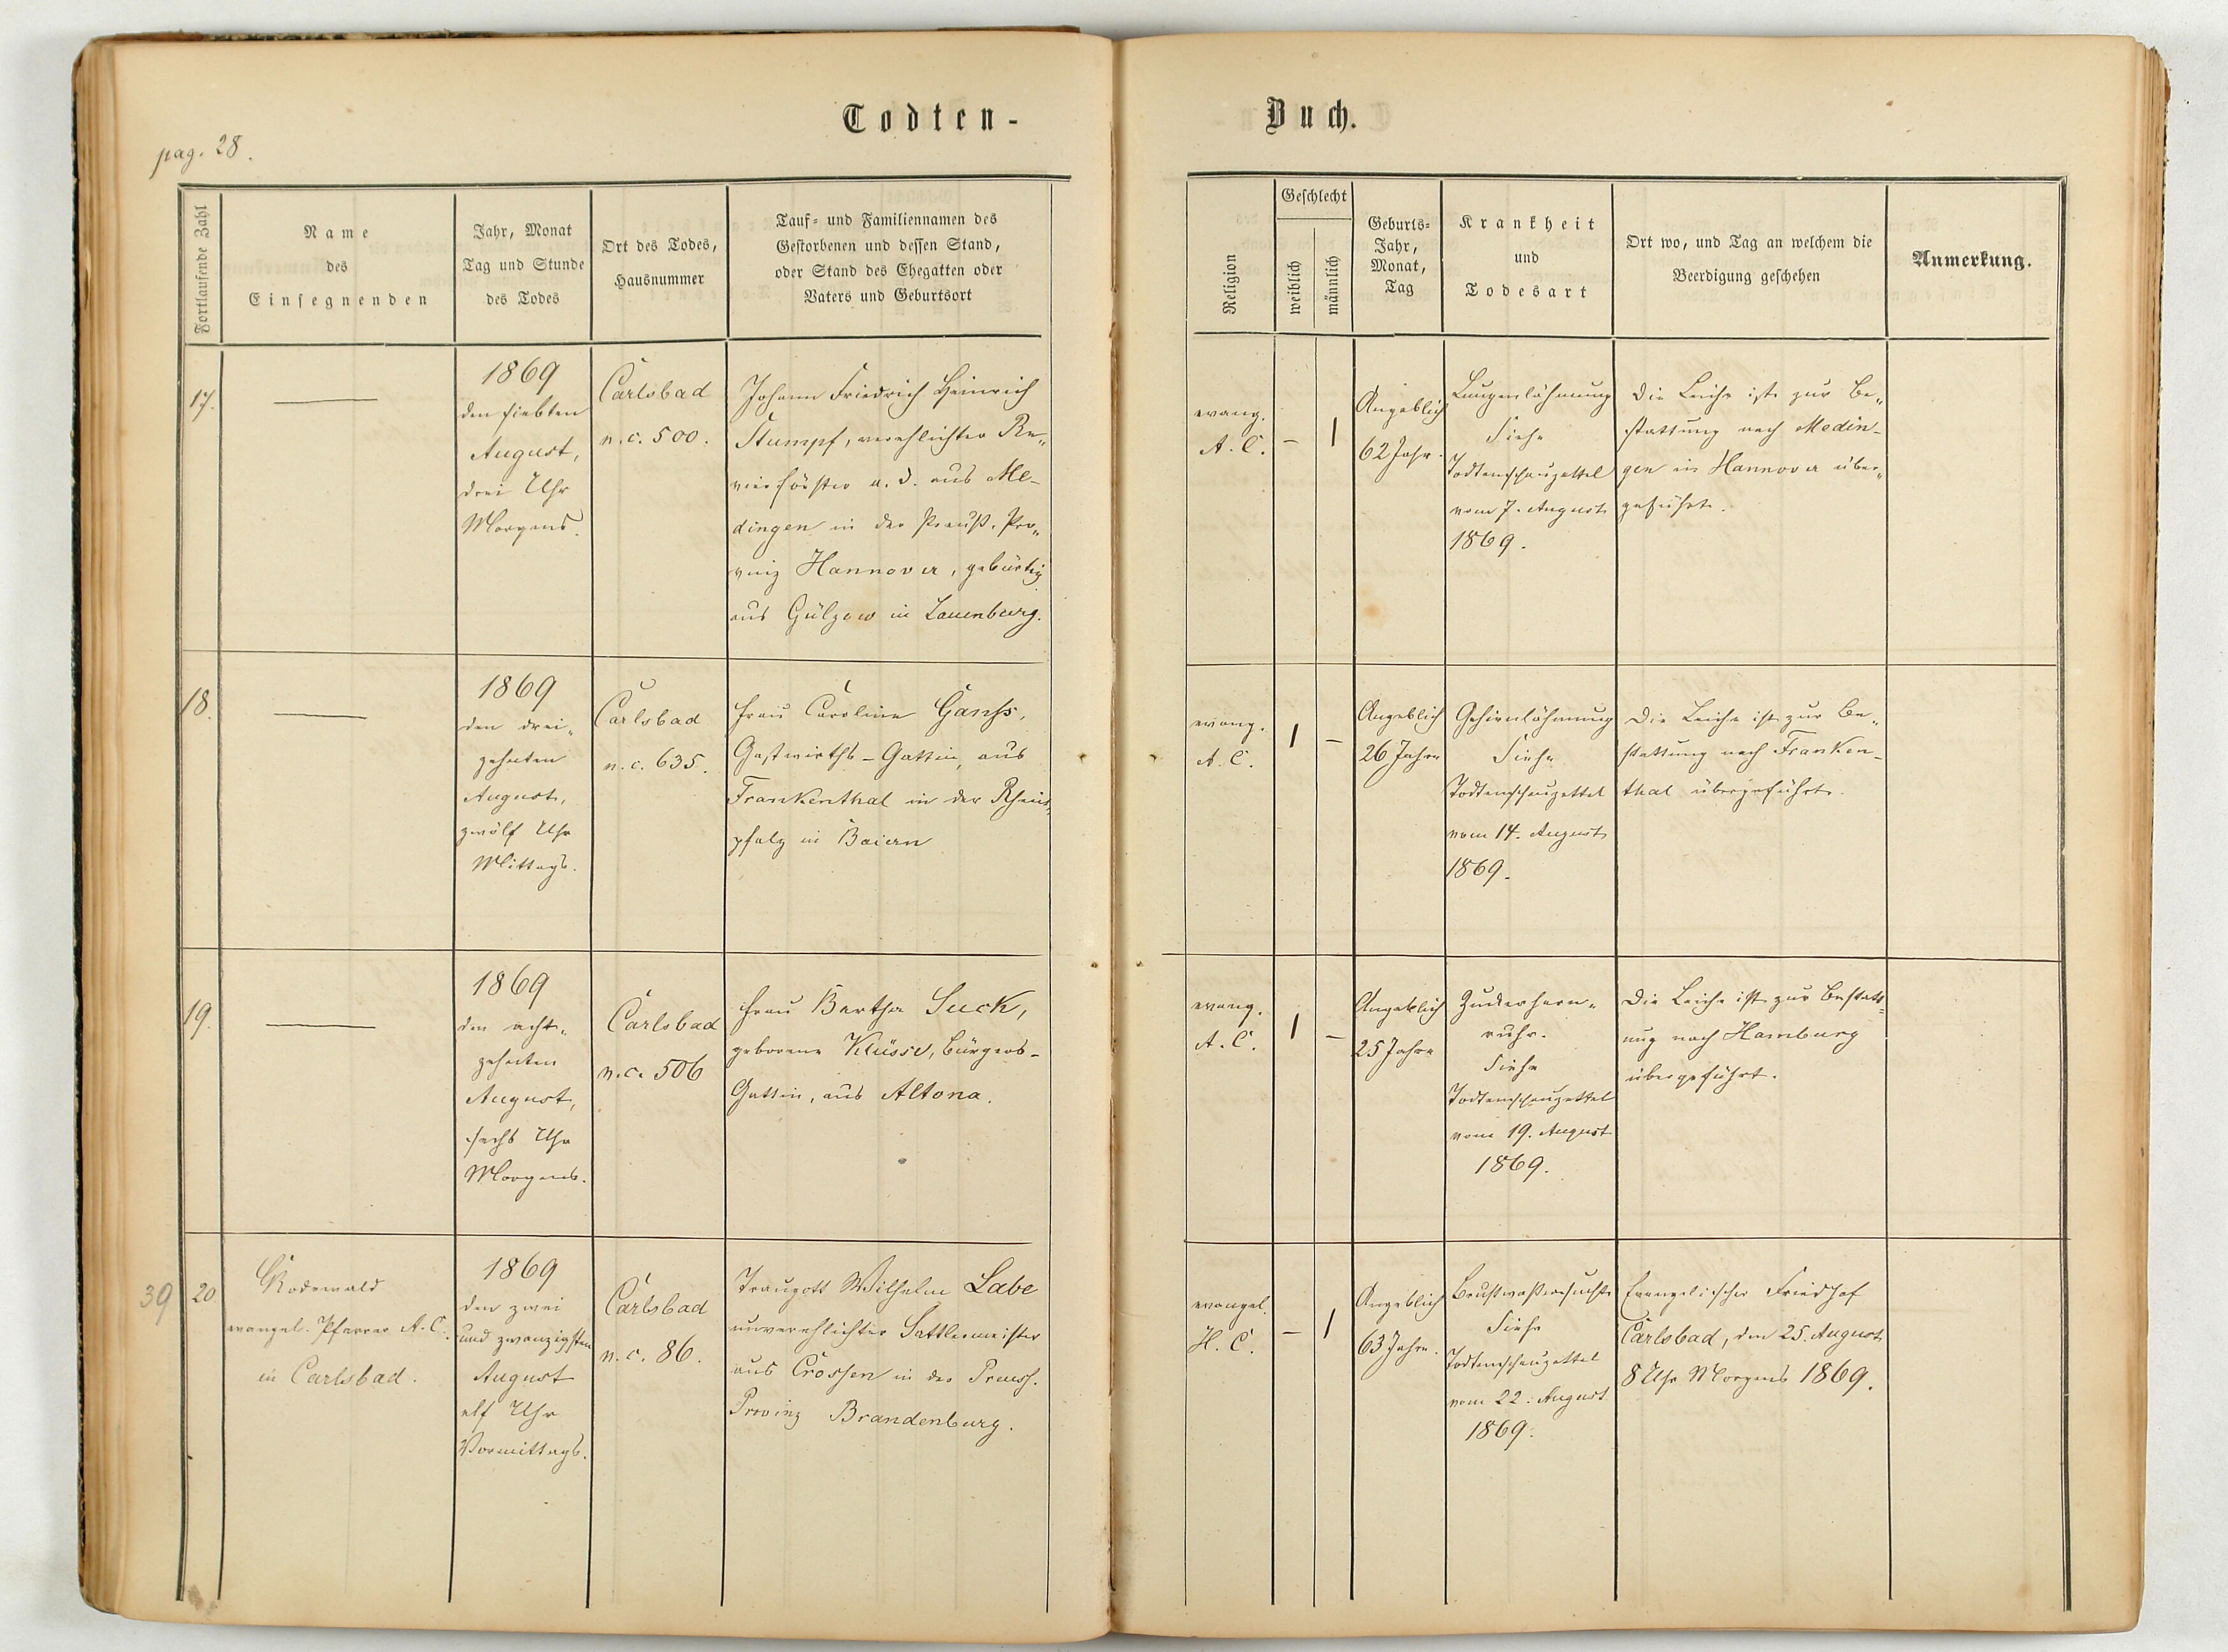 Todten-
Buch.
pag. 28.
Fortlaufende Zahl
Name
des
Einsegnenden
Jahr, Monat
Tag und Stunde
des Todes
Ort des Todes,
Hausnummer
Tauf- und Familiennamen des
Gestorbenen und dessen Stand,
oder Stand des Ehegatten oder
Vaters und Geburtsort
Religion
Geschlecht
weiblich
männlich
Geburts-
Jahr,
Monat,
Tag
Krankheit
und
Todesart
Ort wo, und Tag an welchem die
Beerdigung geschehen
Anmerkung.
17.
1869
den siebten
August,
drei Uhr
Morgens.
Carlsbad
n. c. 500.
Johann Friedrich Heinrich
Stumpf, verehlichter Re„
vierförster a. D. aus Me-
dingen in der Preuß. Pro„
vinz Hannover, gebürtig
aus Gülzow in Lauenburg.
evang.
A. C.
–
1
Angeblich
62 Jahr.
Lungenlähmung
Siehe
Todtenschauzettel
vom 7. August
1869.
Die Leiche ist zur Be„
stattung nach Medin-
gen in Hannover über„
geführt.
18.
1869
den drei„
zehnten
August,
zwölf Uhr
Mittags.
Carlsbad
n. c. 635.
Frau Caroline Ganss,
Gastwirths-Gattin, aus
Frankenthal in der Rhein„
pfalz in Baiern
evang.
A. C.
1
–
Angeblich
26 Jahre
Gehirnlähmung
Siehe
Todtenschauzettel
vom 14. August
1869.
Die Leiche ist zur Be„
stattung nach Franken-
thal übergeführt.
19.
1869
den acht„
zehnten
August,
sechs Uhr
Morgens.
Carlsbad
n. c. 506
Frau Bertha Suck,
geborene Klüsse, Bürgers-
Gattin, aus Altona.
evang.
A. C.
1
–
Angeblich
25 Jahre
Zuckerharn„
ruhr.
Siehe
Todtenschauzettel
vom 19. August
1869.
Die Leiche ist zur Bestatt
ung nach Hamburg
übergeführt.
39
20
Rodewald
evangel. Pfarrer A. C.
in Carlsbad.
1869
den zwei
und zwanzigsten
August
elf Uhr
Vormittags.
Carlsbad
n. c. 86.
Traugott Wilhelm Labe
unverehlichter Sattlermeister
aus Crossen in der Preuss.
Provinz Brandenburg.
evangel.
H. C.
–
1
Angeblich
63 Jahre.
Brustwassersucht
Siehe
Todtenschauzettel
vom 22. August
1869.
Evangelischer Friedhof
Carlsbad, den 25. August
8 Uhr Morgens 1869.